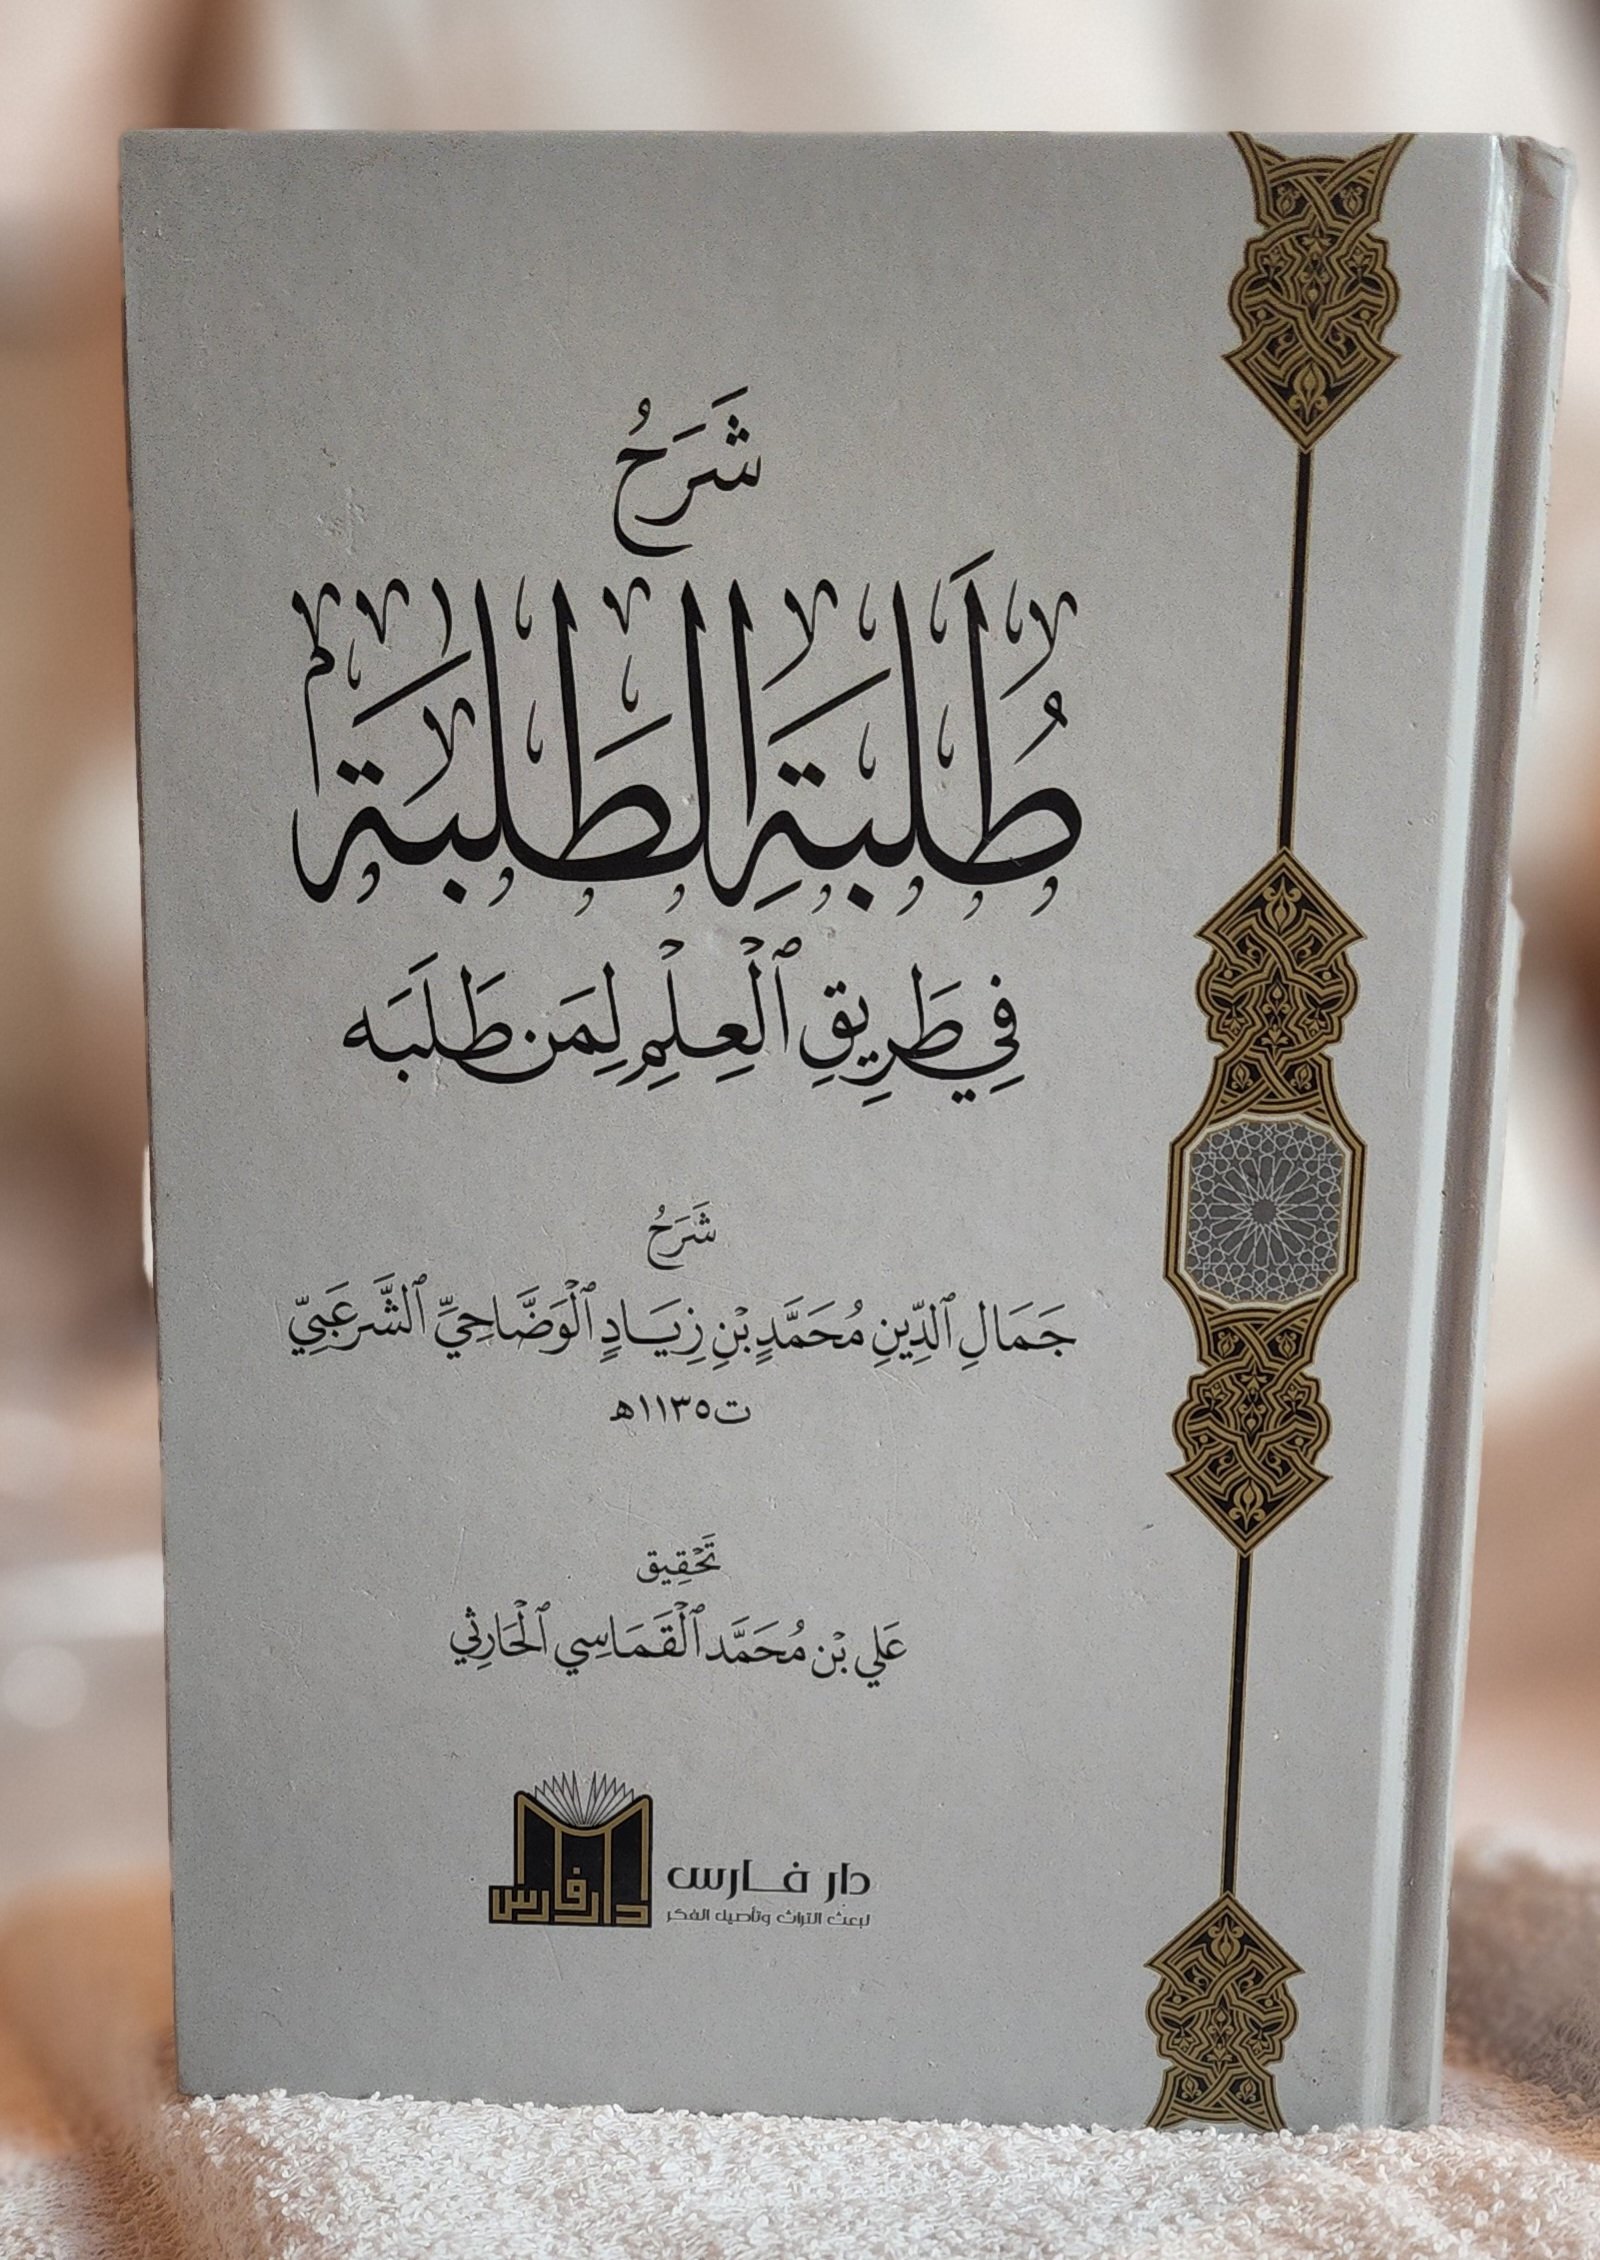 شَرَحُ
طُلَبَةِ الطَلَبَة
فِي طَرِيقِ ٱلْعِلِمِ لِمَن طَلَبَه
شَرَحُ
جَمَالِ ٱلدِّينِ مُحَمَّدِ بْنِ زِيَادٍ ٱلْوَضَّاحِيِّ ٱلشَّرعَبِيّ
ت١١٣٥ه
تَحْقِيق
عَلي بْن مُحَمَّد ٱلْقَمَاسِي ٱلْحَارِثي
دار فارس
لبعث التراث وتأصيل الفكر
دار فارس